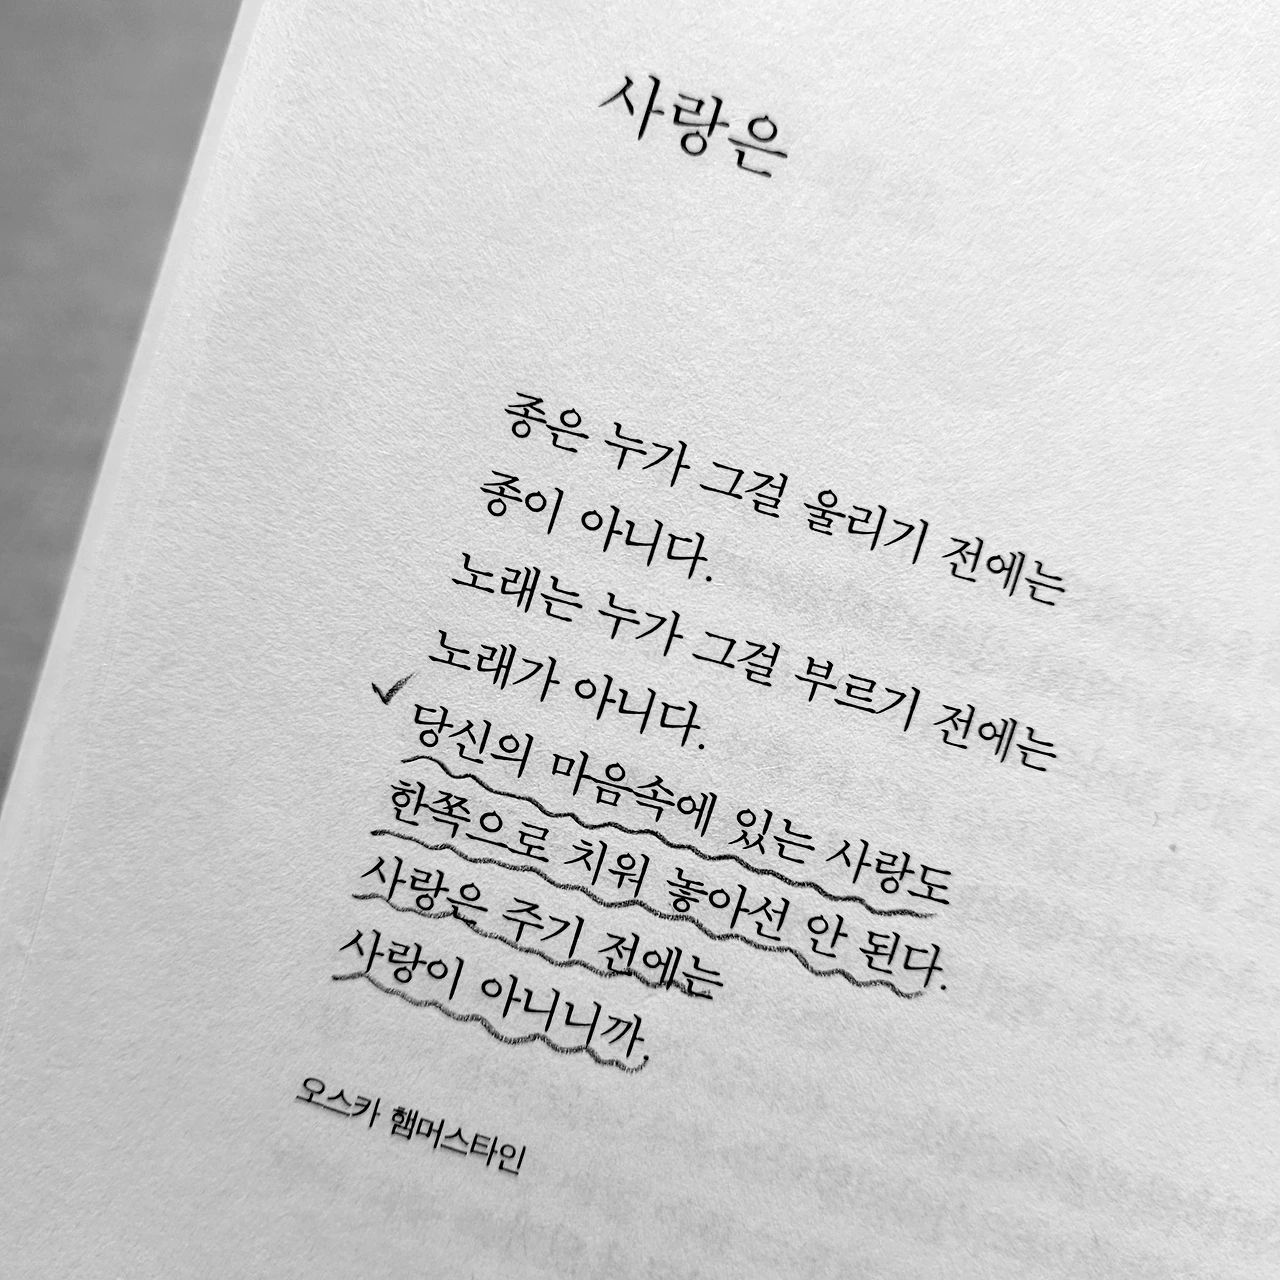 사랑은
종은 누가 그걸 울리기 전에는
종이 아니다.
노래는 누가 그걸 부르기 전에는
노래가 아니다.
당신의 마음속에 있는 사랑도
한쪽으로 치워 놓아선 안 된다.
사랑은 주기 전에는
사랑이 아니니까.
오스카 햄머스타인